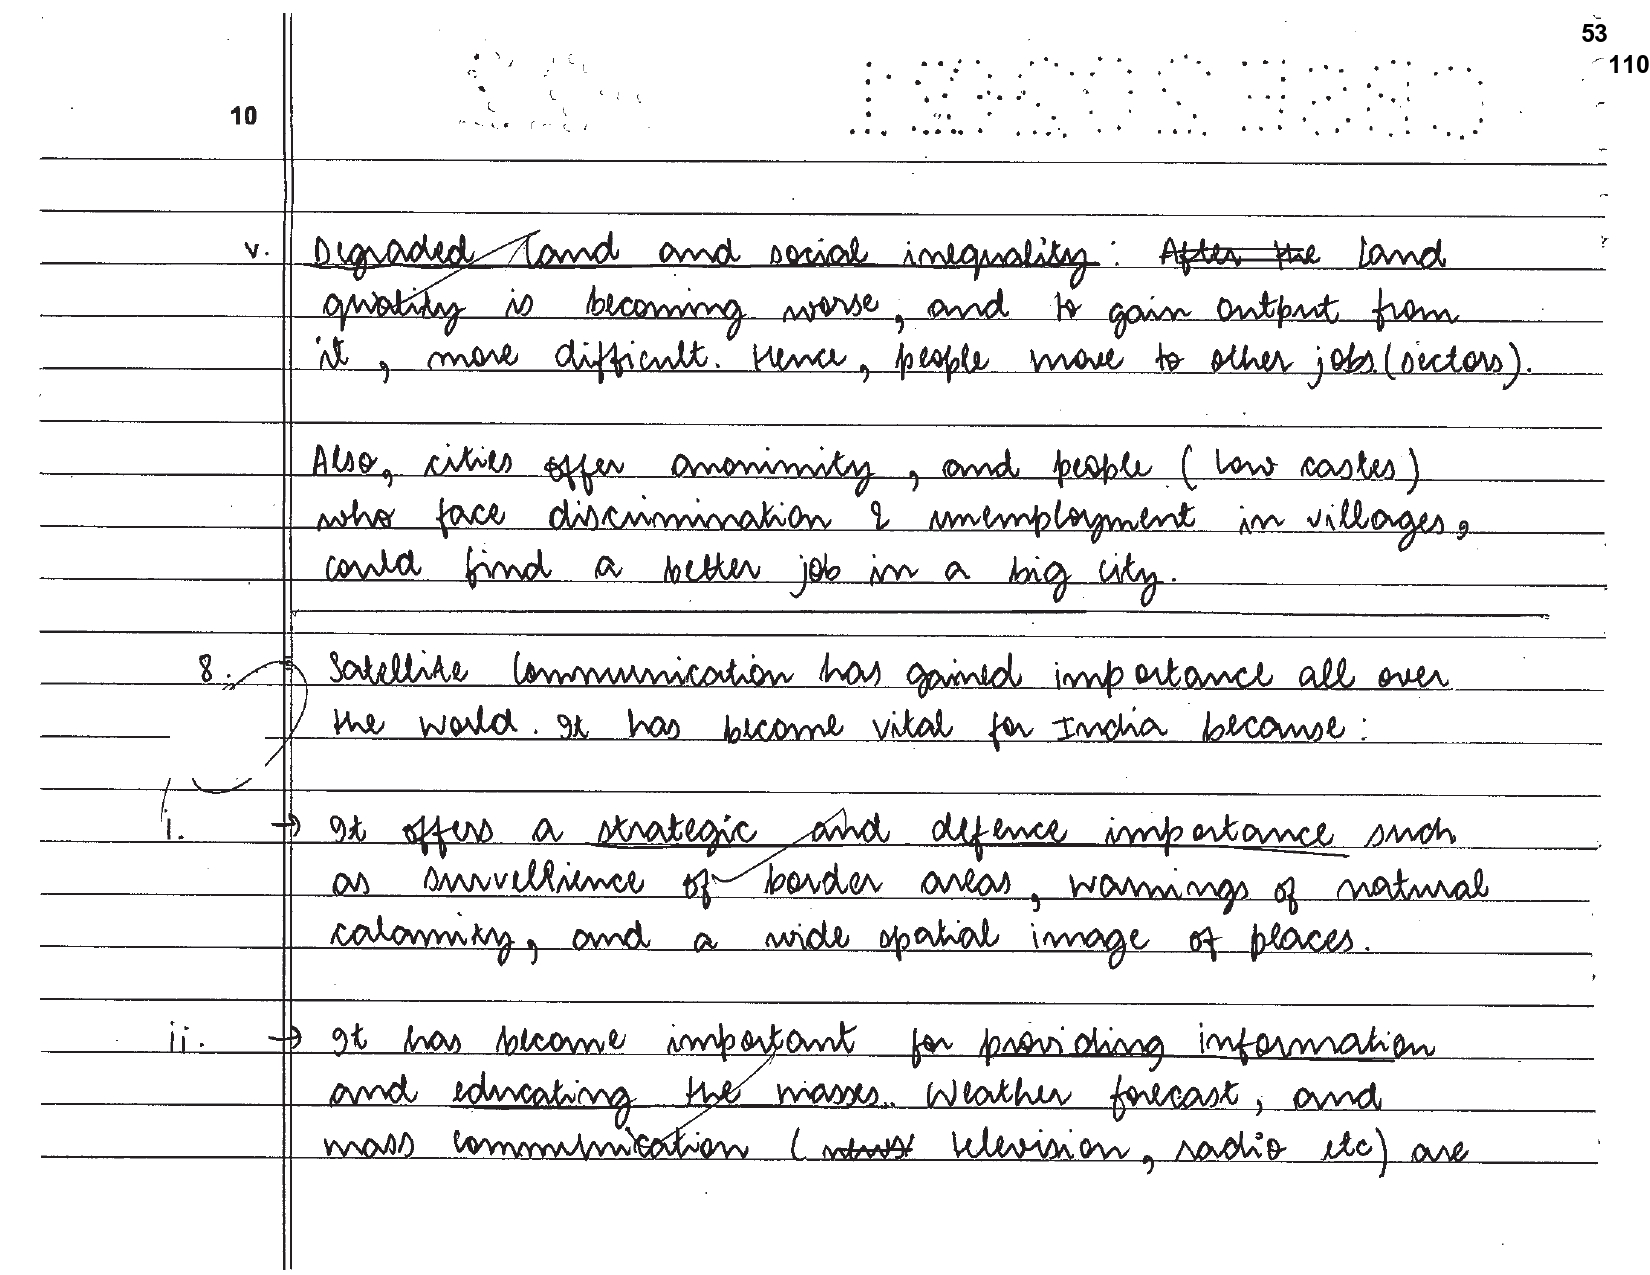 53
110
10
v. Degraded land and social inequality: After the land
quality is becoming worse, and to gain output from
it, more difficult. Hence, people move to other jobs (sectors).
Also, cities offer anonimity, and people (low castes)
who face discrimination & unemployment in villages,
could find a better job in a big city.
8. Satellite Communication has gained importance all over
the world. It has become vital for India because:
i. → It offers a strategic and defence importance such
as survellience of border areas, warnings of natural
calamity, and a wide spatial image of places.
ii. → It has become important for providing information
and educating the masses. Weather forecast, and
mass communication (news television, radio etc) are